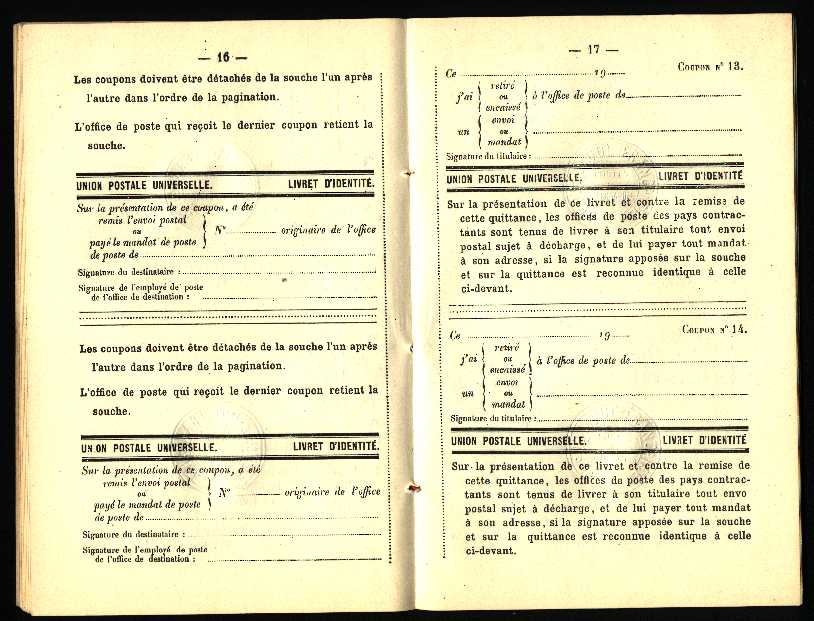 — 16 —
Les coupons doivent être détachés de la souche l'un après
l'autre dans l'ordre de la pagination.
L'office de poste qui reçoit le dernier coupon retient la
souche.
UNION POSTALE UNIVERSELLE. LIVRET D'IDENTITÉ.
Sur la présentation de ce coupon, a été
remis l'envoi postal
ou
payé le mandat de poste
N° originaire de l'office
de poste de
Signature du destinataire :
Signature de l'employé de poste
de l'office de destination :
Les coupons doivent être détachés de la souche l'un après
l'autre dans l'ordre de la pagination.
L'office de poste qui reçoit le dernier coupon retient la
souche.
UNION POSTALE UNIVERSELLE. LIVRET D'IDENTITÉ.
Sur la présentation de ce coupon, a été
remis l'envoi postal
ou
payé le mandat de poste
N° originaire de l'office
de poste de
Signature du destinataire :
Signature de l'employé de poste
de l'office de destination :
— 17 —
Ce 19 COUPON N° 13.
j'ai retiré ou encaissé à l'office de poste de
un envoi ou mandat
Signature du titulaire :
UNION POSTALE UNIVERSELLE. LIVRET D'IDENTITÉ
Sur la présentation de ce livret et contre la remise de
cette quittance, les offices de poste des pays contrac-
tants sont tenus de livrer à son titulaire tout envoi
postal sujet à décharge, et de lui payer tout mandat
à son adresse, si la signature apposée sur la souche
et sur la quittance est reconnue identique à celle
ci-devant.
Ce 19 COUPON N° 14.
j'ai retiré ou encaissé à l'office de poste de
un envoi ou mandat
Signature du titulaire :
UNION POSTALE UNIVERSELLE. LIVRET D'IDENTITÉ
Sur la présentation de ce livret et contre la remise de
cette quittance, les offices de poste des pays contrac-
tants sont tenus de livrer à son titulaire tout envo
postal sujet à décharge, et de lui payer tout mandat
à son adresse, si la signature apposée sur la souche
et sur la quittance est reconnue identique à celle
ci-devant.